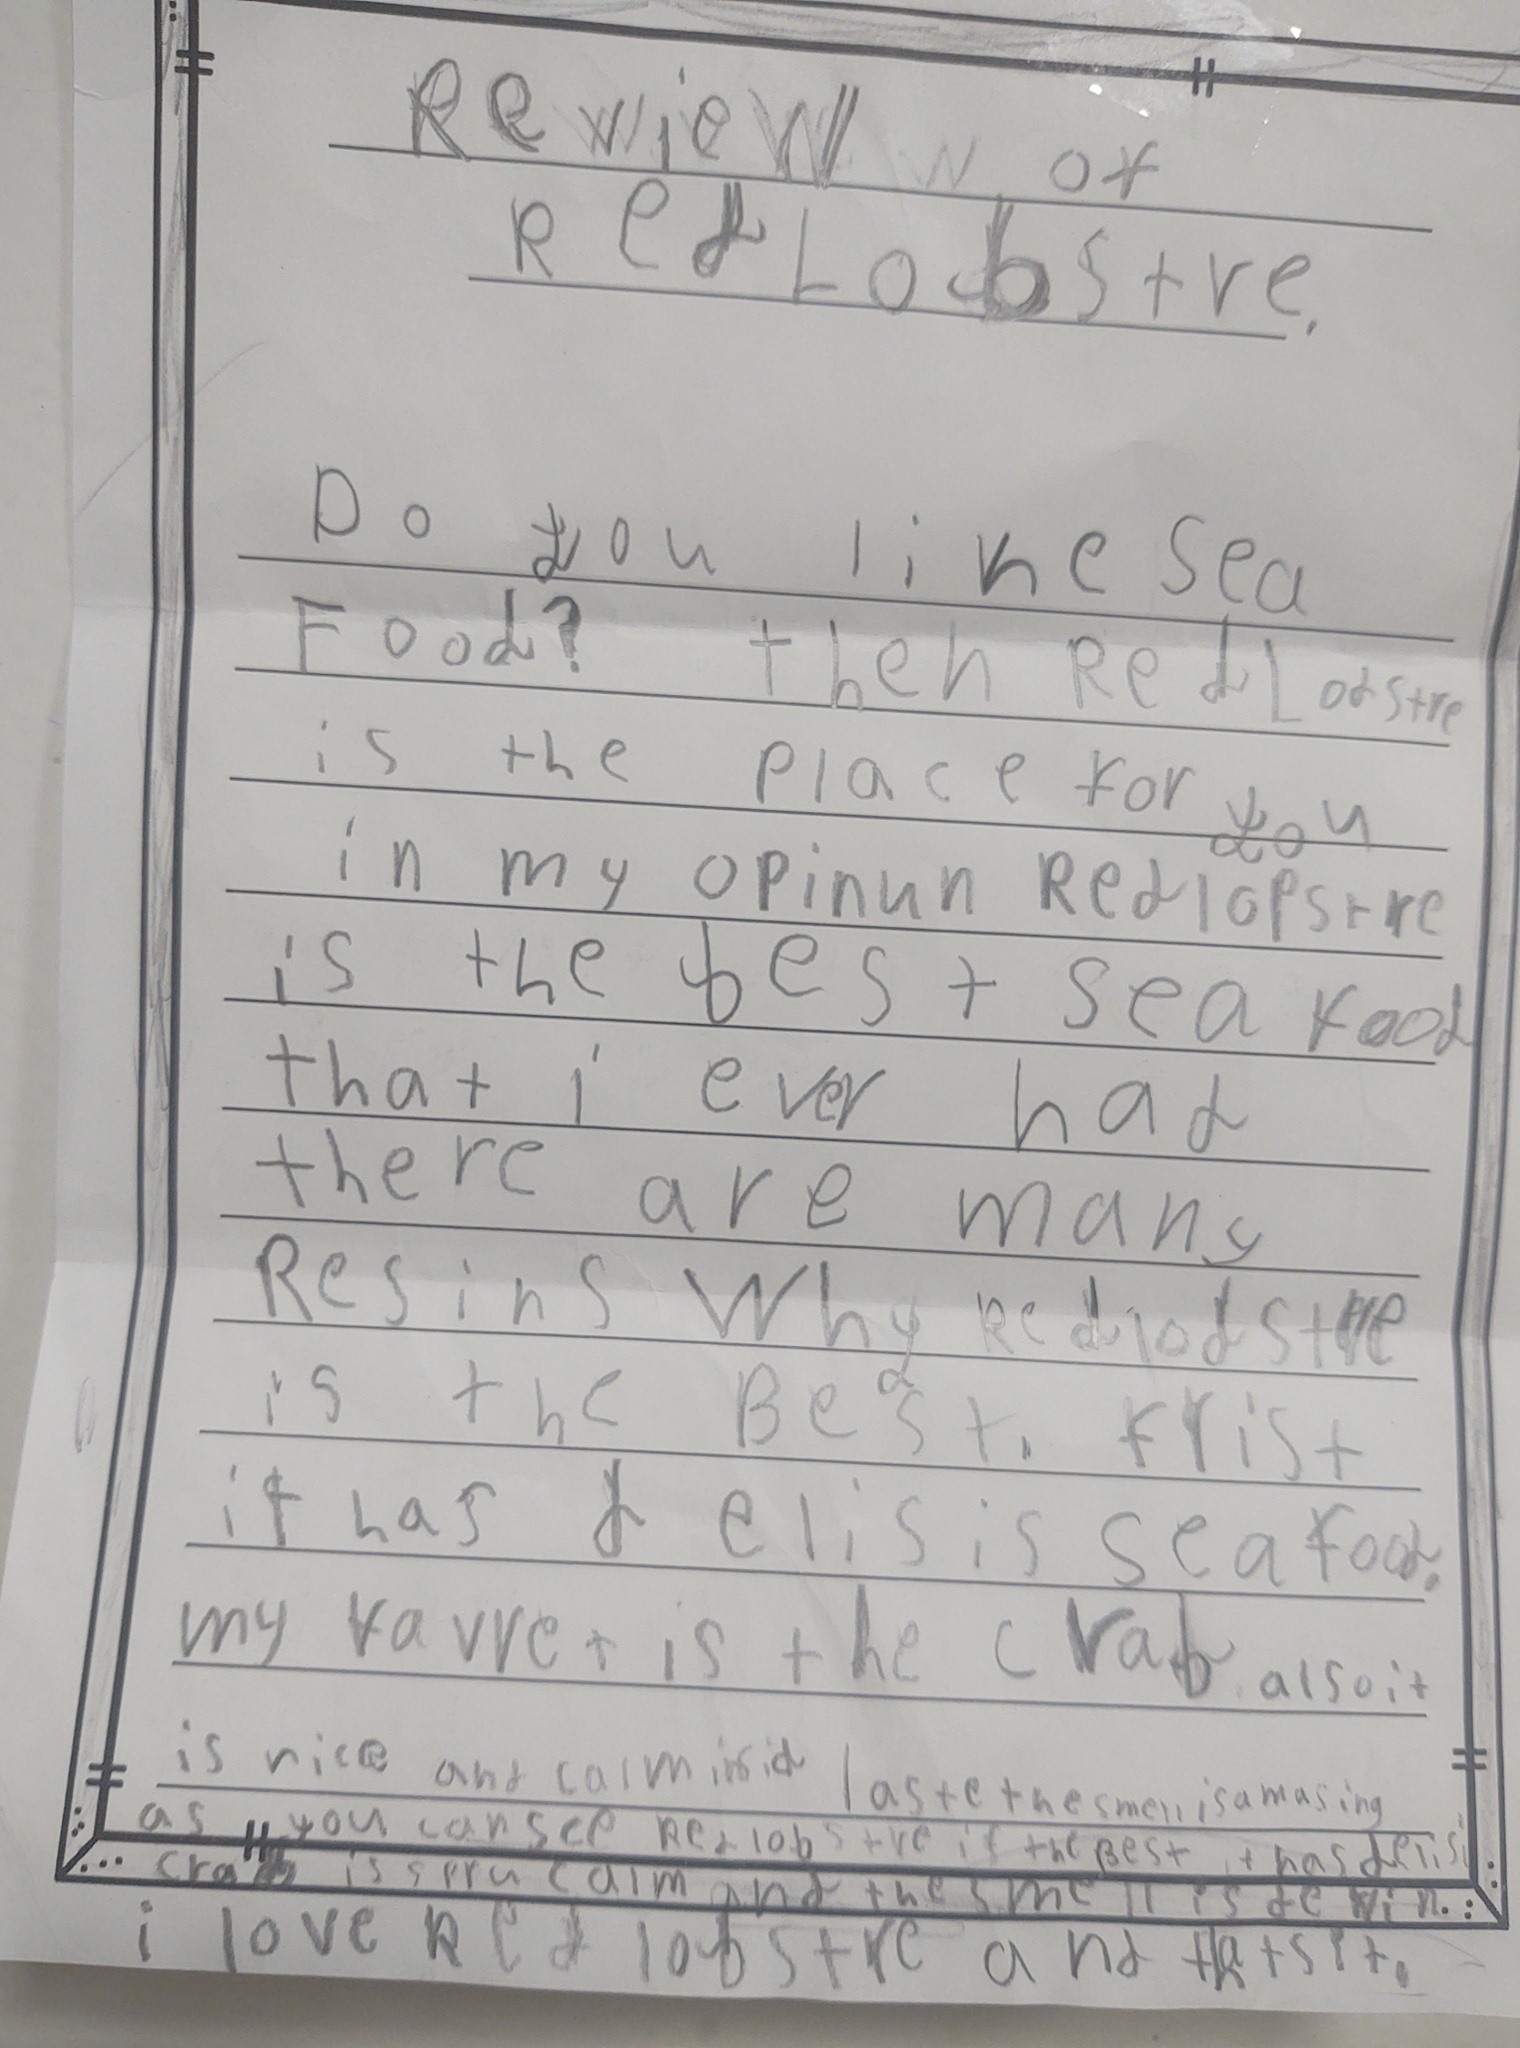 Rewiew of
Red Lobstre.
Do you like sea
Food? then Red Lodstre
is the place for you
in my opinun Redlopstre
is the best sea food
that i ever had
there are many
Resins Why Redlodstre
is the Best. frist
it has delisis sea food.
my favret is the crab. also it
is nice and calm insid laste the smell is amasing
as you can see Red lobstre is the Best it has delisi
crab is supru calm and the smell is de win.
i love Red lobstre and thatsit.